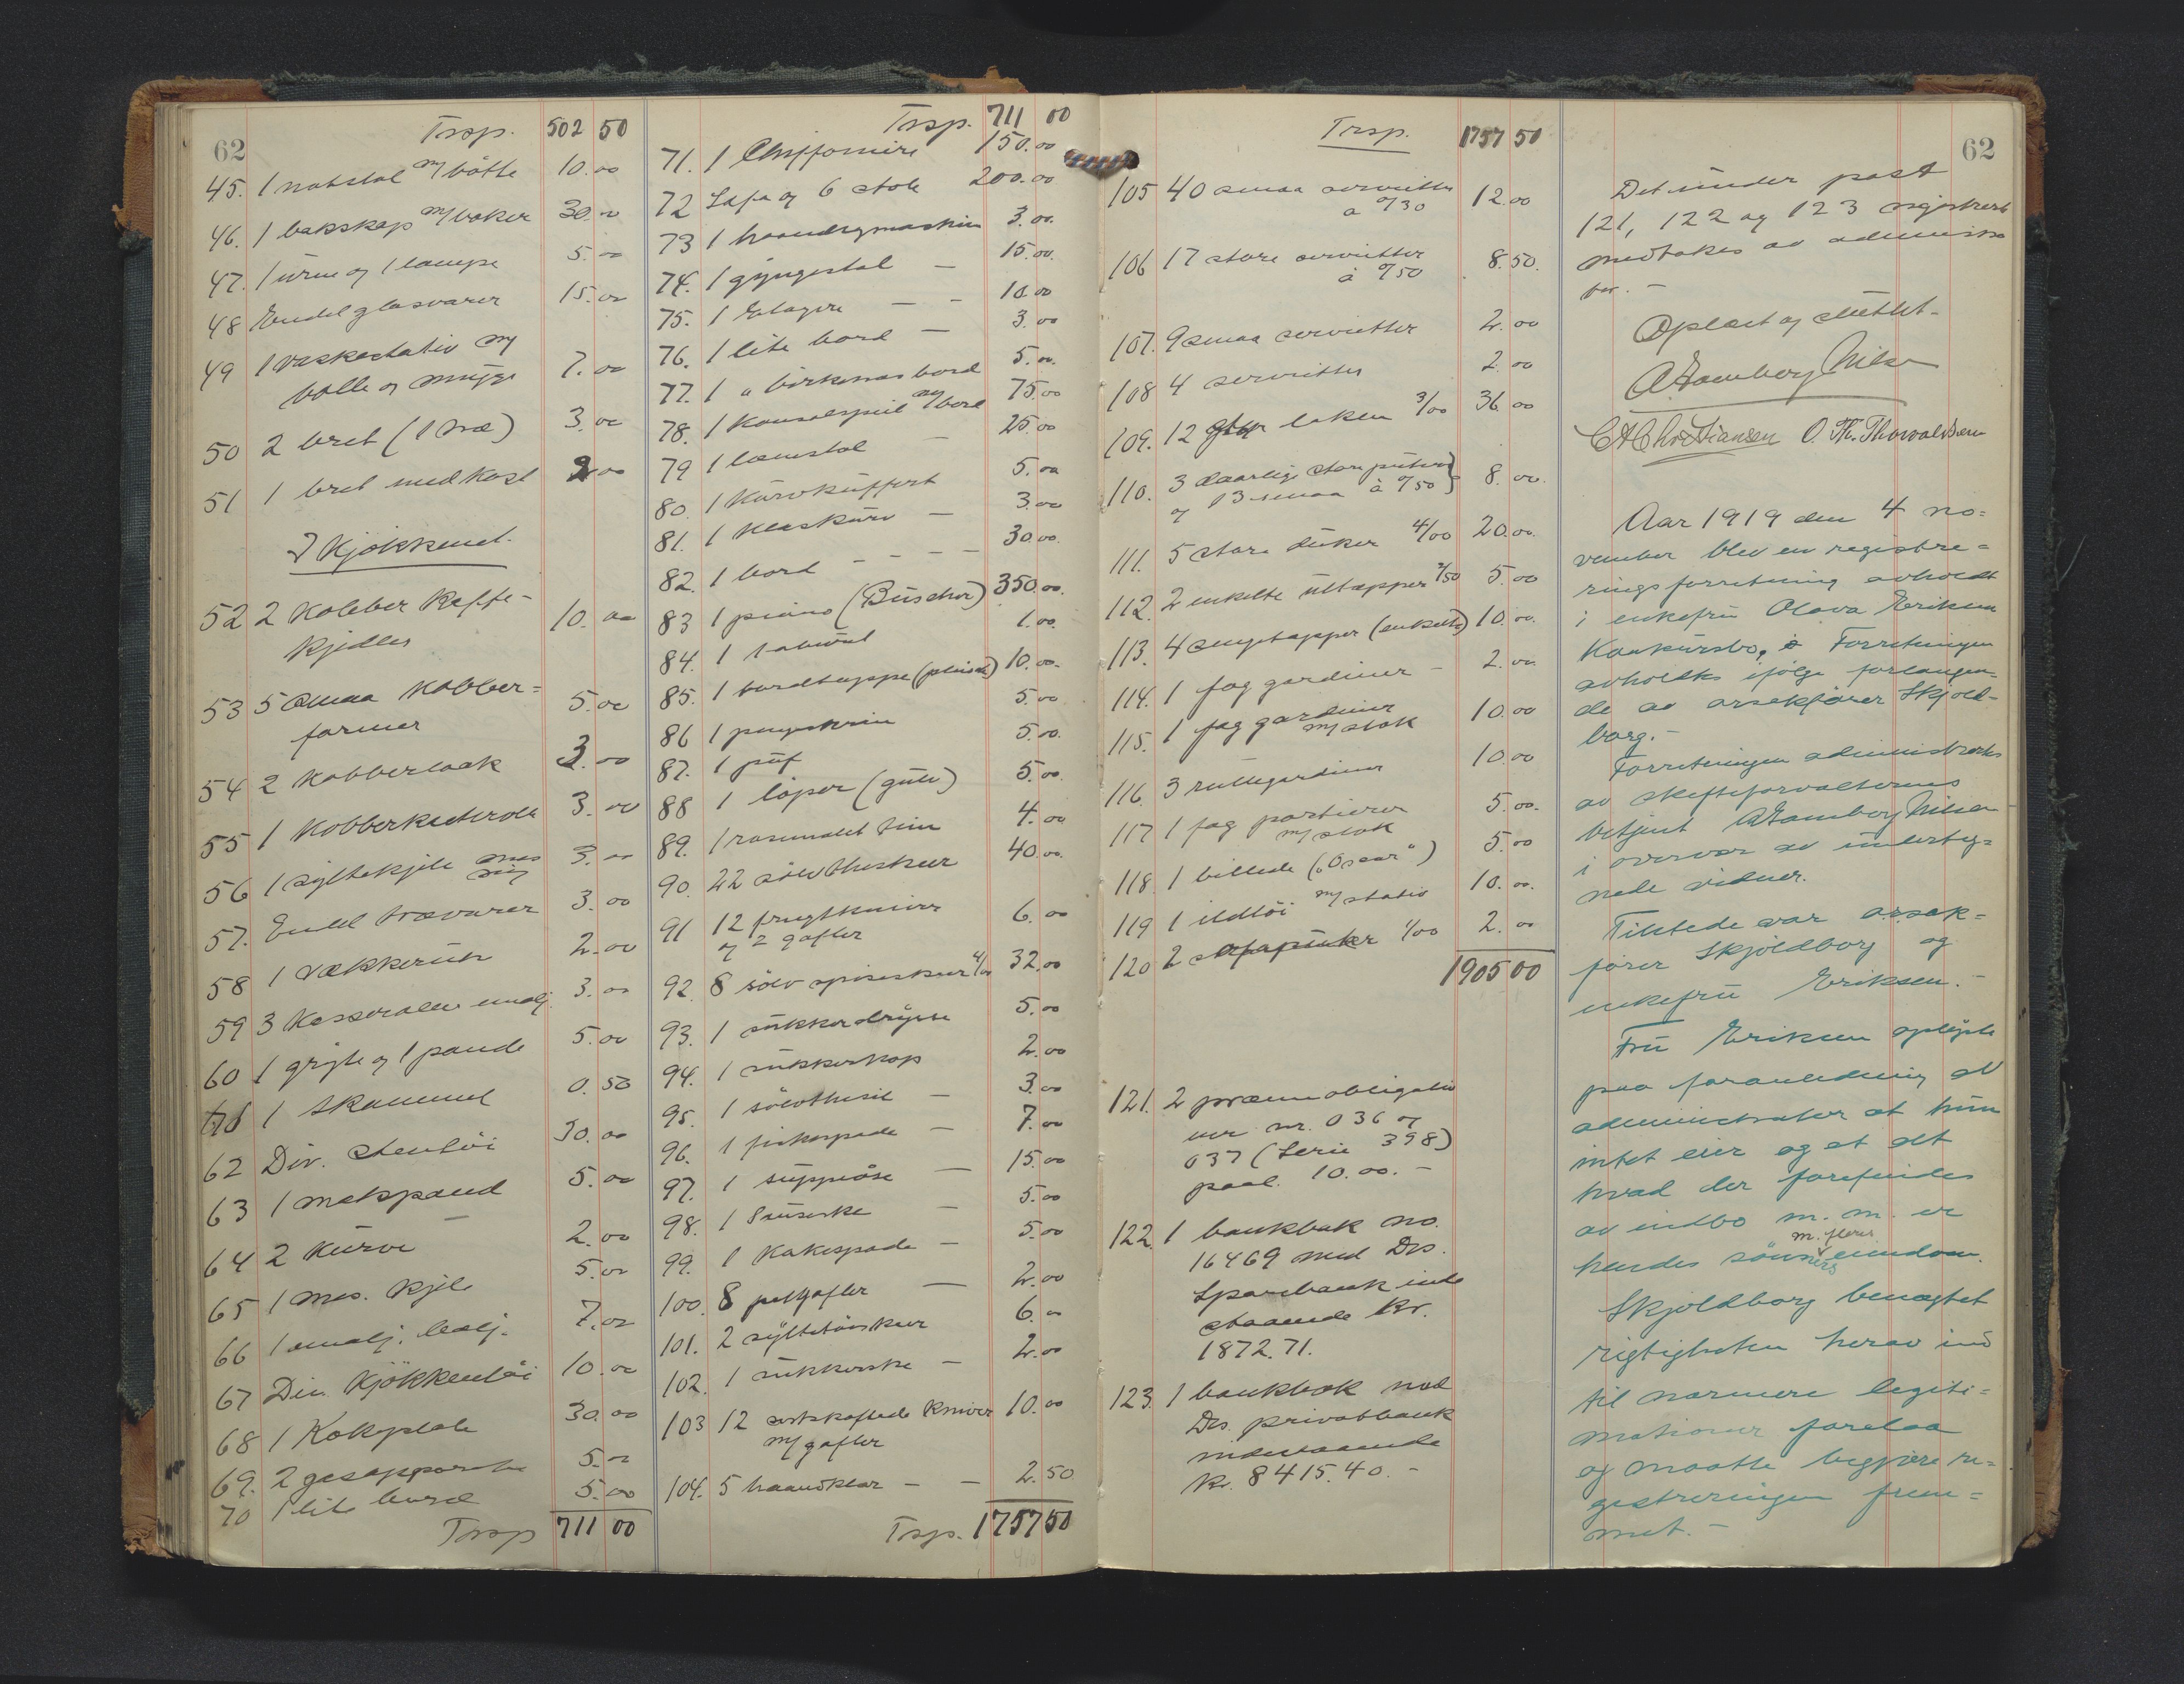 62
Trsp. 502 50
45. 1 natstol m/ bøtte 10.00
46. 1 bokskap m/ bøker 30.00
47. 1 urne og 1 lampe 5.00
48 Endel glasvarer 15.00
49 1 vaskestativ m/
bolle og mugge 7.00
50 2 bret (1 træ) 3.00
51 1 bret med kost 2.00
I Kjøkkenet.
52 2 Kobber Kaffe-
Kjedler 10.00
53 5 smaa Kobber=
former 5.00
54 2 Kobberlaak 3.00
55 1 Kobberkasterolle 3.00
56 1 syltekjele mes
sing 3.00
57. Endel trævarer 3.00
58 1 vækkerur 2.00
59 3 Kasseroller emalj. 3.00
60 1 gryte og 1 pande 5.00
61 1 skammel 0.50
62 Div. stentøi 30.00
63 1 matspand 5.00
64 2 Kurve 2.00
65 1 mes. Kjele 5.00
66 1 emalj. balj. 7.00
67 Div. Kjøkkentøi 10.00
68 1 Kokeplate 30.00
69. 2 gasapparater 5.00
70 1 lite bord 5.00
Trsp 711 00
Trsp. 711 00
71. 1 Chiffoniere 150.00
72 Sofa og 6 stole 200.00
73 1 haandsymaskin 3.00.
74. 1 gyngestol — 15.00.
75. 1 Etagere — — 10.00
76. 1 lite bord — 3.00
77. 1 " birkenæs bord 5.00.
78. 1 Konsolspeil m/ bord 75.00
79 1 lænstol — 25.00
80. 1 Kurvkuffert 5.00
81. 1 Klæskurv — 3.00
82. 1 bord — — — 30.00.
83 1 piano (Büscher) 350.00.
84. 1 taburet 1.00.
85. 1 bordteppe (plüsch) 10.00.
86 1 pengeskrin 5.00
87. 1 puf 5.00.
88 1 løper (gulv) 5.00.
89. 1 rosemalet tine 4.00
90. 22 sølv theskeer 40.00.
91 12 frugtkniver
og 2 gafler 6.00
92. 8 sølv spiseskeer 4/00 32.00
93. 1 sukkerdrysse 5.00
94. 1 sukkerkop 2.00
95. 1 sølvthesil — 3.00
96. 1 fiskespade — 7.00
97. 1 suppeøse — 15.00
98. 1 Sauseske — 5.00
99. 1 Kakespade — 5.00
100. 8 petitgafler — 2.00
101. 2 syltetøiskeer 6.00
102. 1 sukkerske — 2.00
103 12 sortskaftede Kniver
m/ gafler 10.00
104. 5 haandklær — — 2.50
Trsp. 1757 50
Trsp. 1757 50
105 40 smaa servietter
a 0/30 12.00
106 17 store servietter
à 0/50 8.50.
107. 9 smaa servietter 2.00
108 4 servietter 2.00
109. 12 laken 3/00 36.00
110. 3 daarlige store putevar
og 13 smaa à 0/50 8.00.
111. 5 store duker 4/00 20.00.
112. 2 enkelte ultepper 2/50 5.00
113. 4 sengetepper (enkelte) 10.00.
114. 1 fag gardiner — 2.00.
115. 1 fag gardiner
m/ stok 10.00
116. 3 rullegardiner 10.00
117 1 fag portierer
m/ stok 5.00.
118. 1 billede ("Oscar") 5.00
119 1 ildtøi m/ stativ 10.00.
120 2 sofaputer 1/00 2.00
1905 00
121. 2 præmieobligatio
ner nr. 036 og
037 (Serie 398)
paal. 10.00.—
122. 1 bankbok no.
16469 med Drs.
Sparebank inde
staaende Kr.
1872.71.
123. 1 bankbok ved
Drs. privatbank
indestaaende
Kr. 8415.40.—
62
Det under post
121, 122 og 123 registrert
medtokes av administra
tor.—
Oplæst og sluttet.
A Ramberg Nilsen
C A Christiansen O. Th. Thorvaldsen
Aar 1919 den 4 no=
vember blev en registre=
ringsforretning avholdt
i enkefru Olava Eriksens
Konkursbo. Forretningen
avholdtes ifølge forlangen-
de av orsakfører Skjold-
borg.—
Forretningen administrertes
av skifteforvalterens
betjent A Ramberg Nilsen
i overvær av underteg=
nede vidner.
Tilstede var orsak=
fører Skjoldborg og
enkefru Eriksen.—
Fru Eriksen oplyste
paa foranledning av
administrator at hun
intet eier og at alt
hvad der forefindes
av indbo m. m. er
m. fleres
hendes sønners eiendom.
Skjoldborg benegtet
rigtigheten herav ind
til nærmere legiti=
mationer forelaa
og maatte begjære re=
gistreringen frem=
met.—